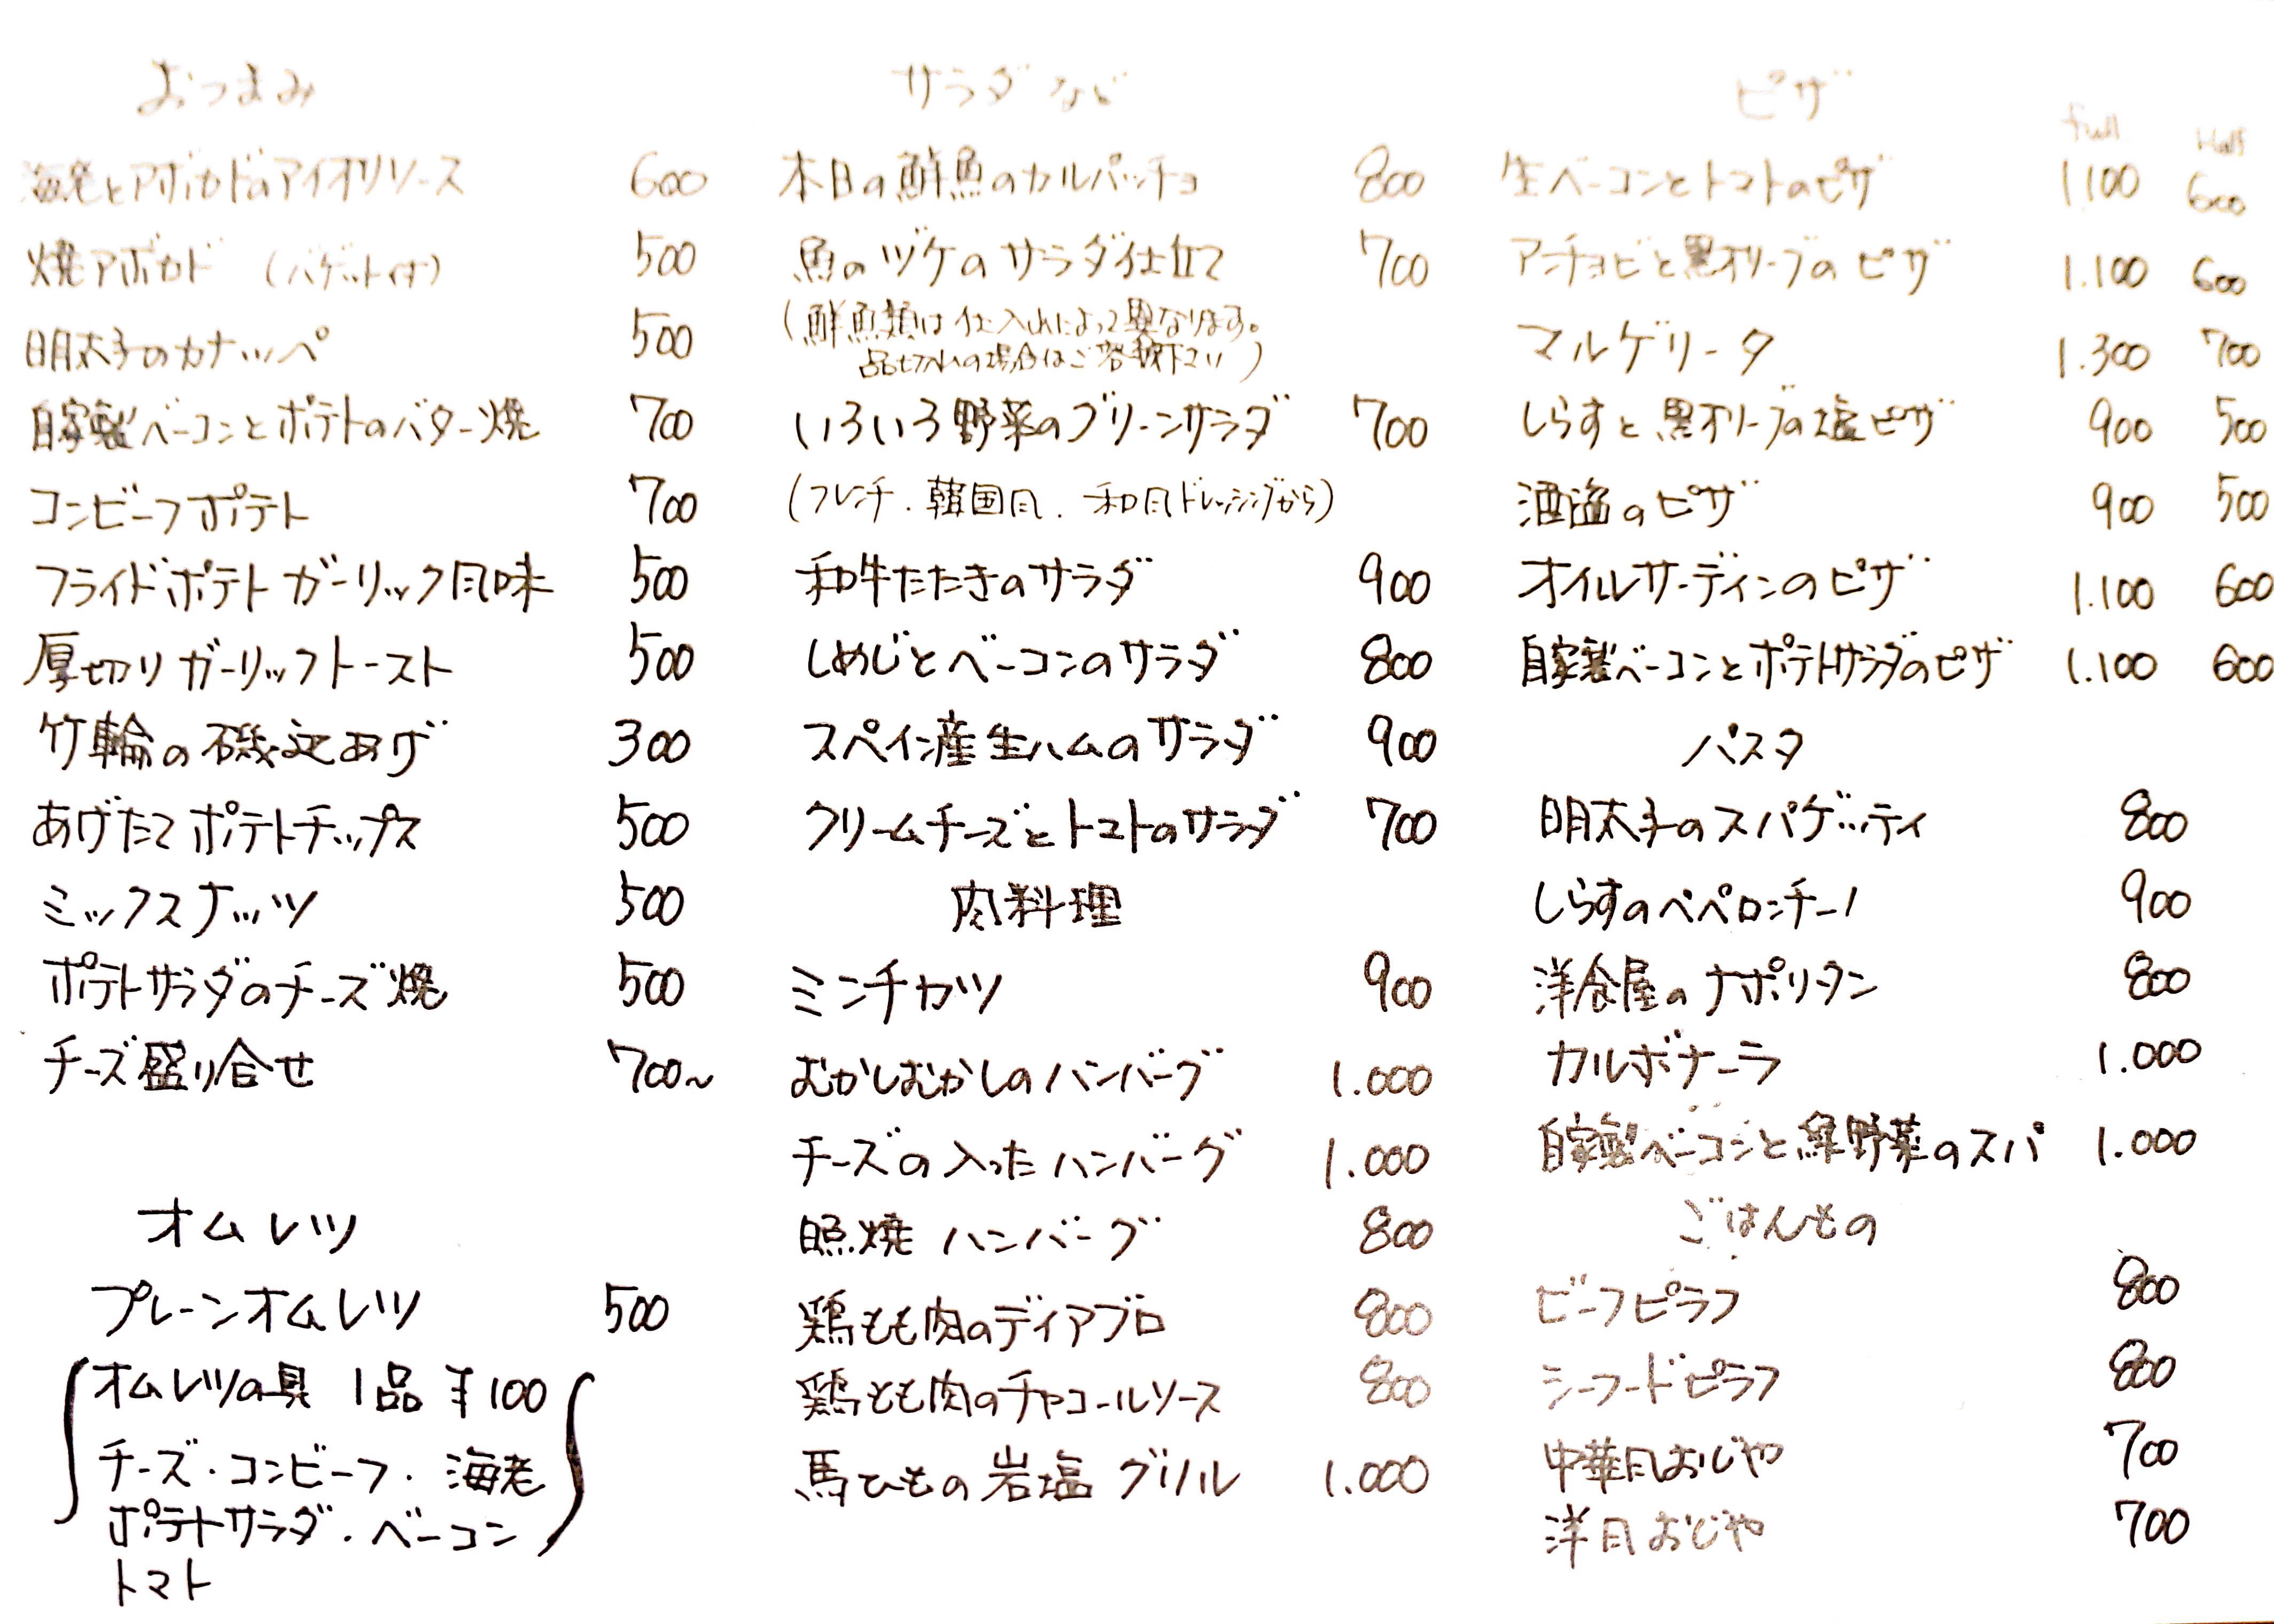 おつまみ
海老とアボカドのアイオリソース 600
焼アボカド (バゲット付) 500
明太子のカナッペ 500
自家製ベーコンとポテトのバター焼 700
コンビーフポテト 700
フライドポテト ガーリック風味 500
厚切りガーリックトースト 500
竹輪の磯辺あげ 300
あげたてポテトチップス 500
ミックスナッツ 500
ポテトサラダのチーズ焼 500
チーズ盛り合せ 700~
オムレツ
プレーンオムレツ 500
オムレツの具 1品 ¥100
チーズ・コンビーフ・海老
ポテトサラダ・ベーコン
トマト
サラダなど
本日の鮮魚のカルパッチョ 800
魚のヅケのサラダ仕立て 700
(鮮魚類は仕入れによって異なります。
品切れの場合はご容赦下さい)
いろいろ野菜のグリーンサラダ 700
(フレンチ．韓国風．和風ドレッシングから)
和牛たたきのサラダ 900
しめじとベーコンのサラダ 800
スペイン産生ハムのサラダ 900
クリームチーズとトマトのサラダ 700
肉料理
ミンチカツ 900
むかしむかしのハンバーグ 1.000
チーズの入ったハンバーグ 1.000
照焼ハンバーグ 800
鶏もも肉のディアブロ 800
鶏もも肉のチャコールソース 800
馬ひもの岩塩グリル 1.000
ピザ
full Half
生ベーコンとトマトのピザ 1100 600
アンチョビと黒オリーブのピザ 1.100 600
マルゲリータ 1.300 700
しらすと黒オリーブの塩ピザ 900 500
酒盗のピザ 900 500
オイルサーディンのピザ 1.100 600
自家製ベーコンとポテトサラダのピザ 1.100 600
パスタ
明太子のスパゲッティ 800
しらすのペペロンチーノ 900
洋食屋のナポリタン 800
カルボナーラ 1.000
自家製ベーコンと緑野菜のスパ 1.000
ごはんもの
ビーフピラフ 800
シーフードピラフ 800
中華風おじや 700
洋風おじや 700